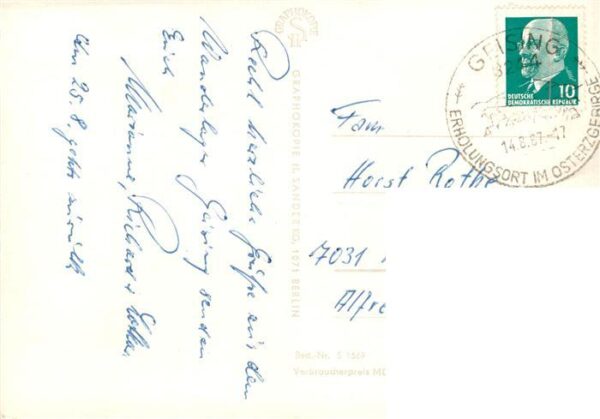 Recht herzliche Grüße aus dem
Wanderlager Geising senden
Euch
Marianne, Richard + Lothar
Am 25.8. gehts zurück
GRAPHOKOPIE
GRAPHOKOPIE H. SANDER KG, 1071 BERLIN
Best.-Nr. S 1569
Verbraucherpreis MD
Fam
Horst Rothe
7031
Alfre
DEUTSCHE
DEMOKRATISCHE REPUBLIK
10
GEISING
14.8.67-17
ERHOLUNGSORT IM OSTERZGEBIRGE